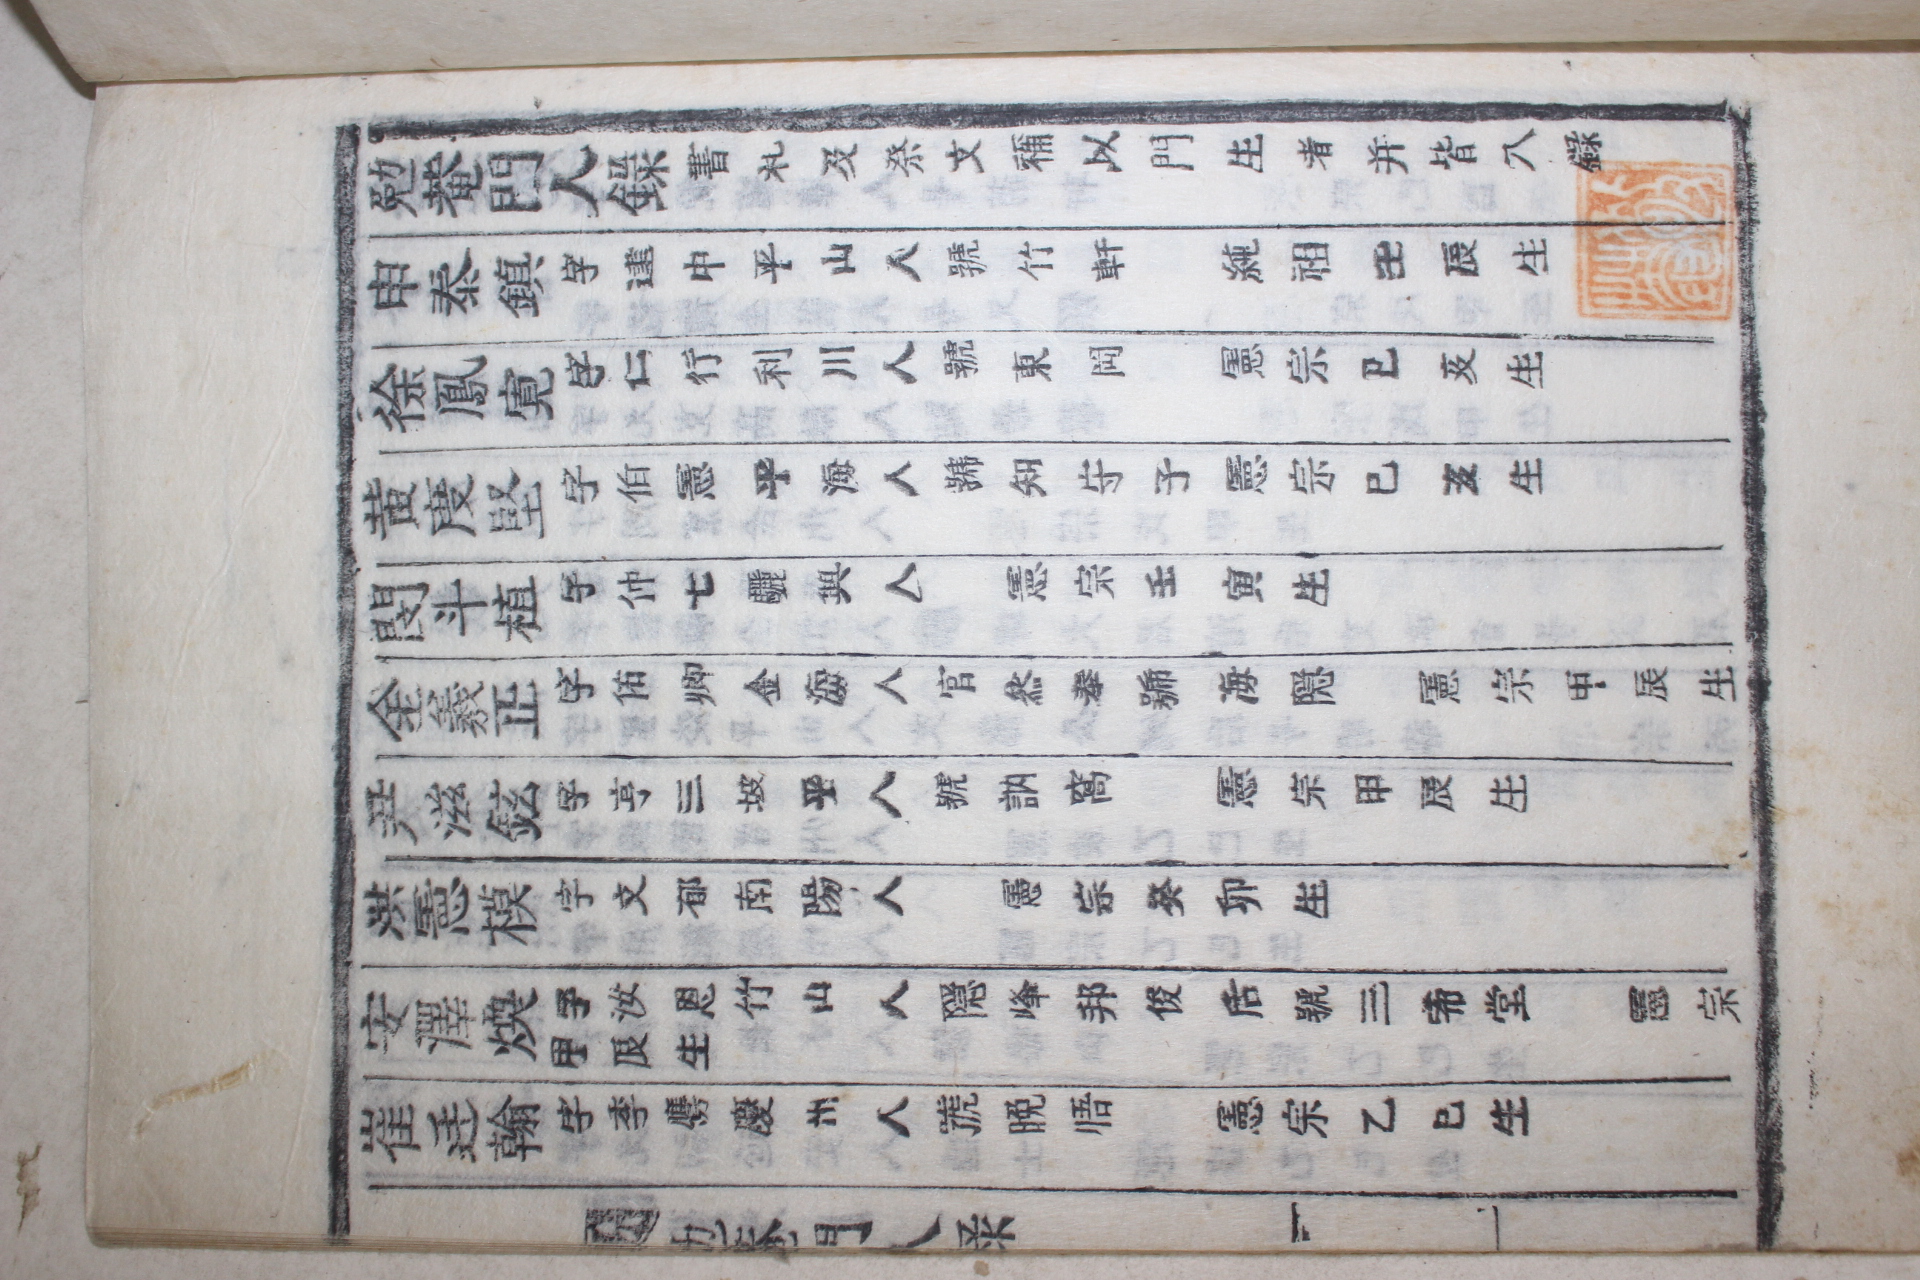 勉菴門人錄 書札及祭文稱以門生者并皆入錄
申泰鎮 字逹中平山人號竹軒 純祖壬辰生
徐鳳寬 字仁行利川人號東岡 憲宗己亥生
黄度堅 字伯憲平海人號知守子憲宗己亥生
閔斗植 字仲七驪興人 憲宗壬寅生
金義正 字佑卿金海人官叅奉號海隱 憲宗甲辰生
尹滋鉉 字亨三坡平人號訥窩 憲宗甲辰生
洪憲模 字文郁南陽人 憲宗癸卯生
安澤煥 字汝恩竹山人隱峰邦俊后號三希堂 憲宗
甲辰生
崔廷翰 字季鷹慶州人號晚悟 憲宗乙巳生
勉菴門人錄 一